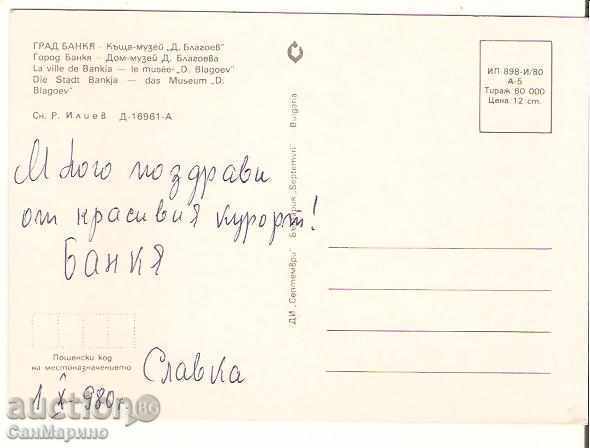 ГРАД БАНКЯ - Къща-музей „Д. Благоев"
Город Банкя - Дом-музей Д. Благоева
La ville de Bankia — le musée-„D. Blagoev"
Die Stadt Bankja — das Museum „D.
Blagoev"
Сн. Р. Илиев Д-16961-А
Много поздрави
от красивия курорт!
Банкя
Славка
1 X 980 г.
Пощенски код
на местоназначението
ДИ „Септември" България „Septemvri" Bulgaria
ИП 898-И/80
А-5
Тираж 80 000
Цена 12 ст.
auction BG
СанМарино